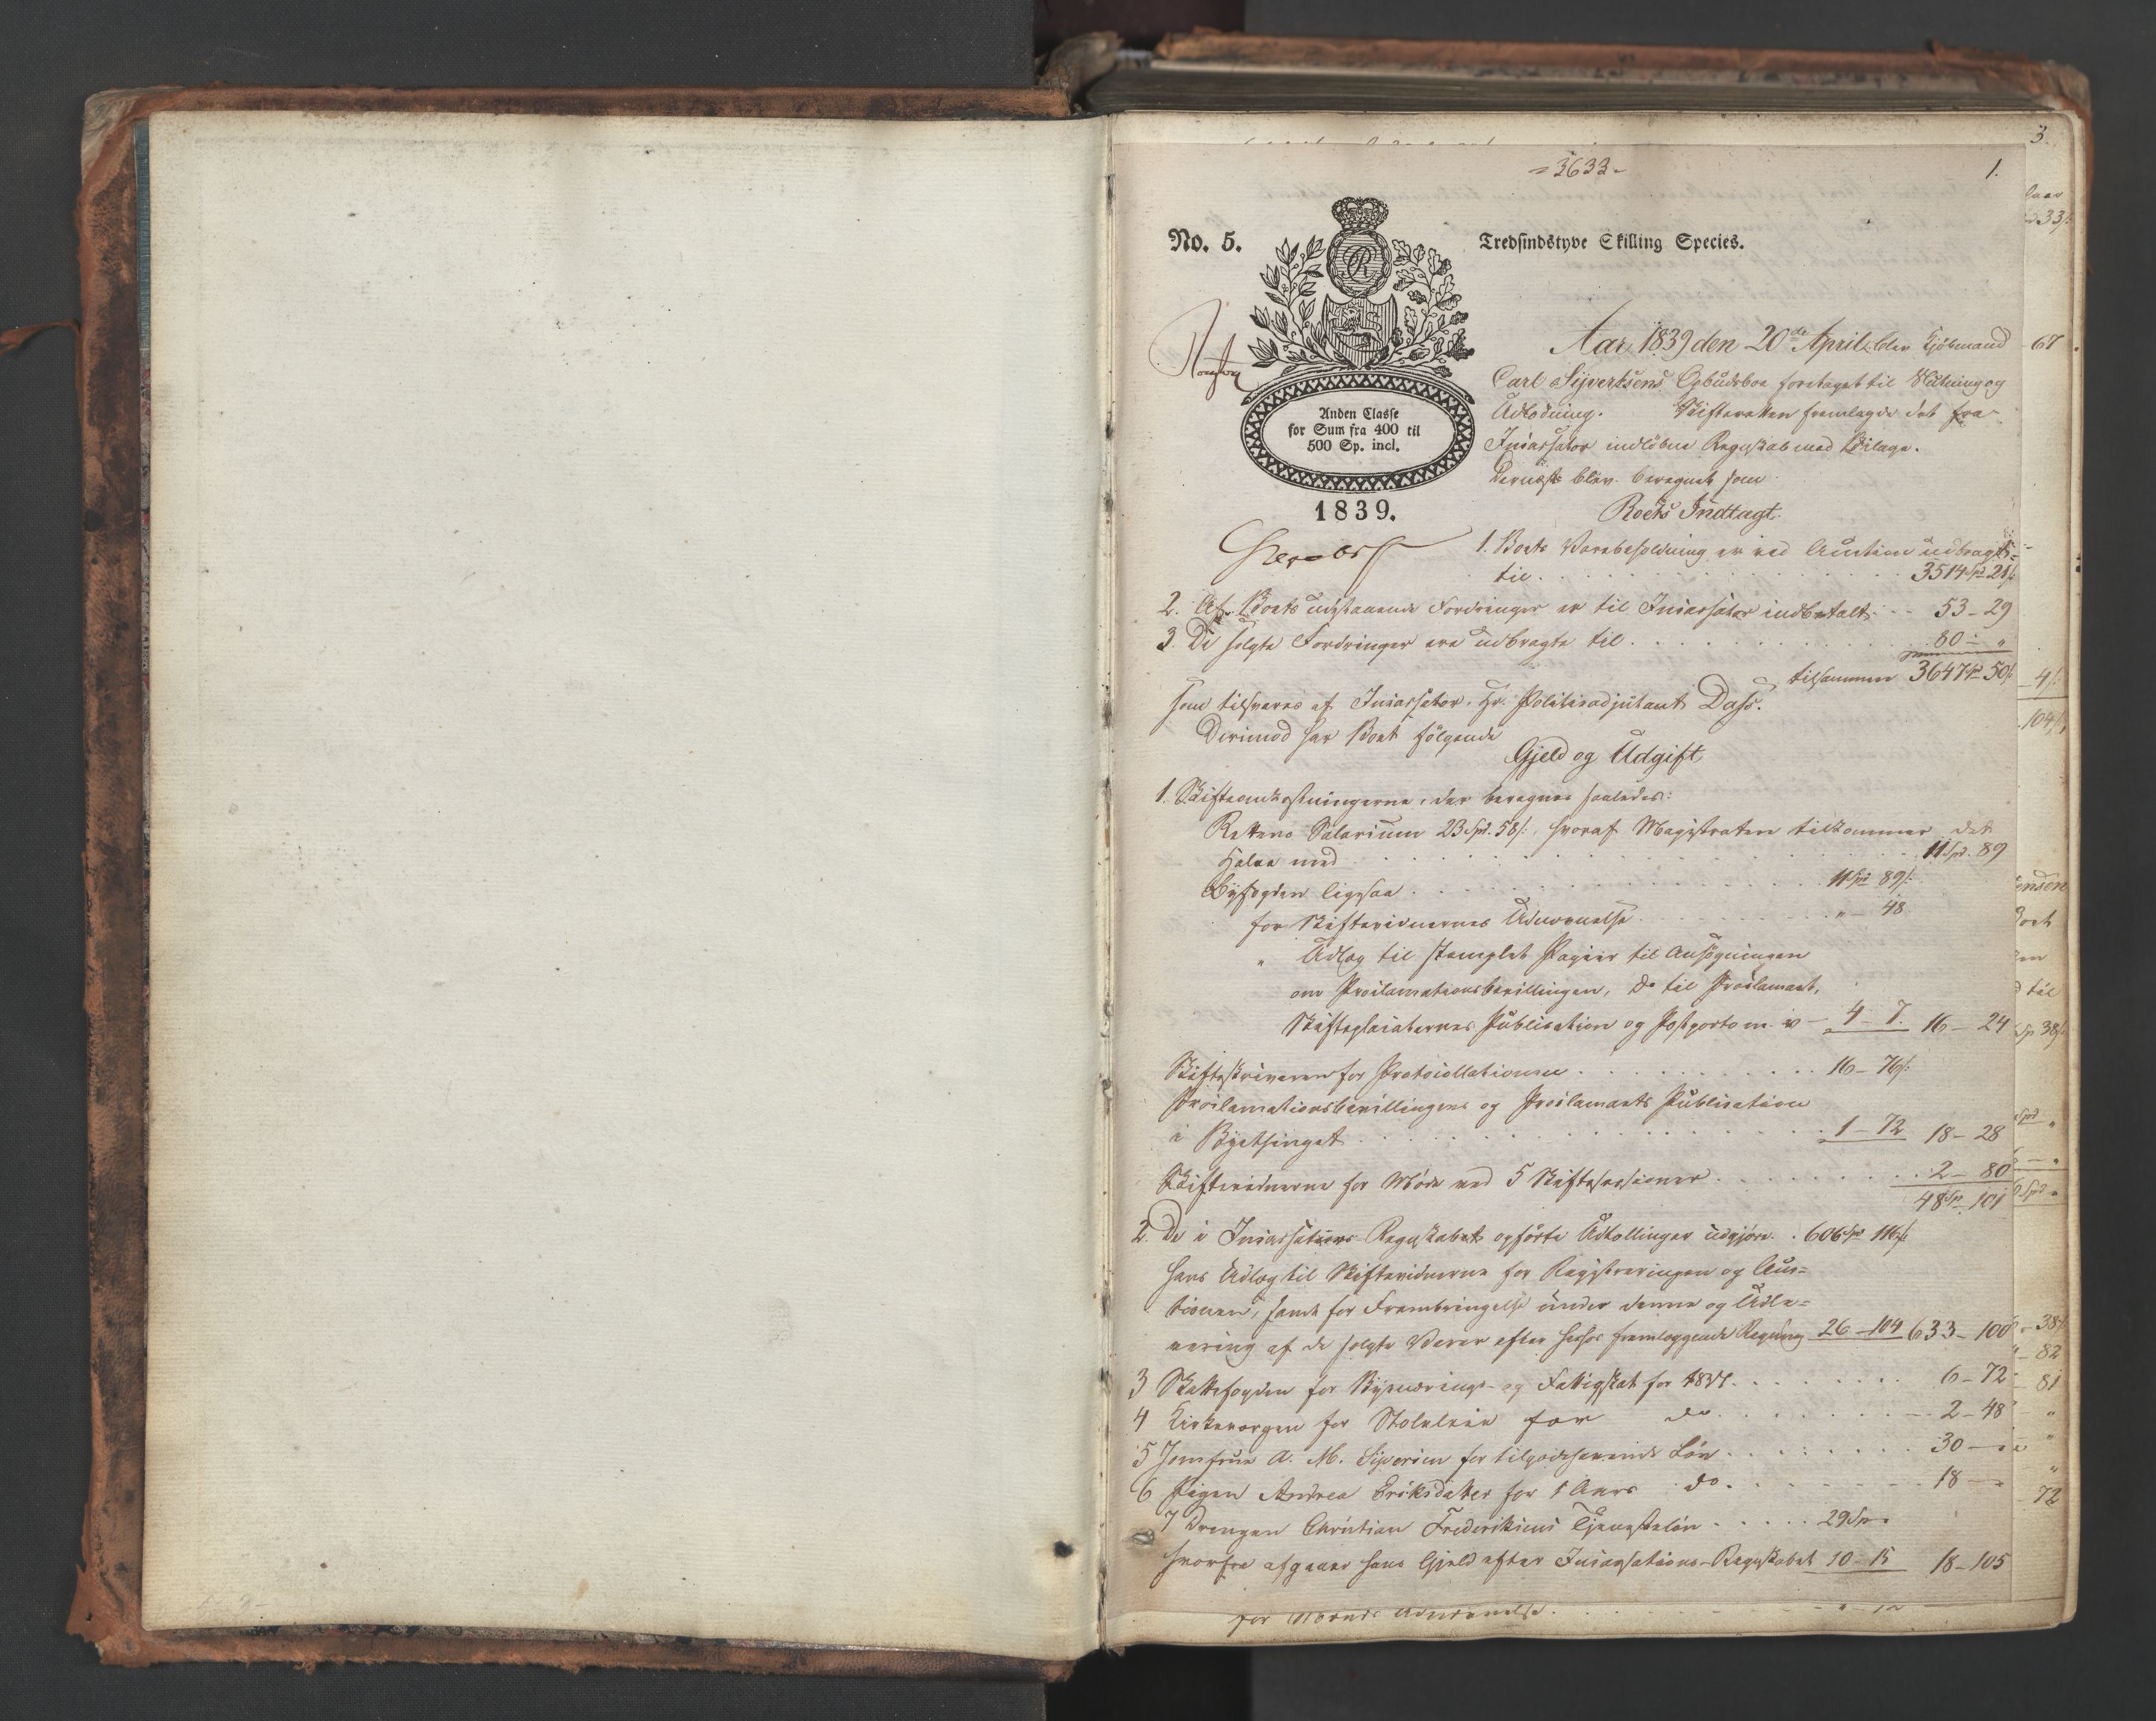 3.
=3633=
1.
No. 5.
Tredsindstyve Skilling Species.
R
Anden Classe
for Sum fra 400 til
500 Sp. incl.
1839.
Aar 1839 den 20de April blev Kjöbmand
Carl Syvertsens Opbudsboe foretaget til Slutning og
Udlodning. Skifteretten fremlagde det fra
Incassator indlöbne Regnskab med Bilage.
Dernæst blev beregnet som
Boets Indtægt.
1. Boets Varebeholdning er ved Auction udbragt
til 3514 Spd 21 s
2. Af Boets udestaaende Fordringer er til Incassator indbetalt 53 - 29
3. De solgte Fordringer ere udbragte til 80 - "
tilsammen 3647 Spd 50 s
som tilsvares af Incassator, Hr. Politieadjutant Dass.
Derimod har Boet fölgende
Gjeld og Udgift
1. Skifteomkostningerne, der beregnes saaledes:
Rettens Salarium 23 Spd. 58 s, hvoraf Magistraten tilkommer det
Halve med 11 Spd. 89
Byfogden ligesaa 11 Spd 89 s
for Skiftevidnernes Udnævnelse " - 48
" Udlæg til stemplet Papiir til Ansögningen
om Proclamationsbevillingen, do til Proclamaet,
Publication og Postporto m. v. 4 - 7. 16 - 24
Skifteskriveren for Protocollationen 16 - 76 s
Proclamationsbevillingens og Proclamaets Publication
i Byethinget 1 - 72 18 - 28
Skiftevidnerne for Möde ved 5 Skiftesessioner 2 - 80
48 Sp 101
2. De i Incassations-Regnskabet opförte Udtællinger udgjöre 606 Spd 116 s
hans Udlæg til Skiftevidnerne for Registreringen og Auc=
tionen, samt for Frembringelse under denne og Udle=
vering af de solgte Varer efter fremlæggende Regning 26 - 104 633 - 100
3 Skattefogden for Bynærings- og Fattigskat for 1837. 6 - 72
4 Kirkeværgen for Stoleleie for do 2 - 48
5 Jomfrue A. M. for tilgodehavende Lön 30 - "
6 Pigen Andrea Eriksdatter for 1 Aars do 18 - "
7 Drengen Christian Frederiksens Tjenestelön 29 Sp "
hvorfra afgaaer hans Gjeld efter Incassations-Regnskabet 10 - 15 18 - 105
for Udnævnelse
33 s
67
4 s
104 s
ensen
Boet
til
Sp 38 s
Spd "
38
82
81
72